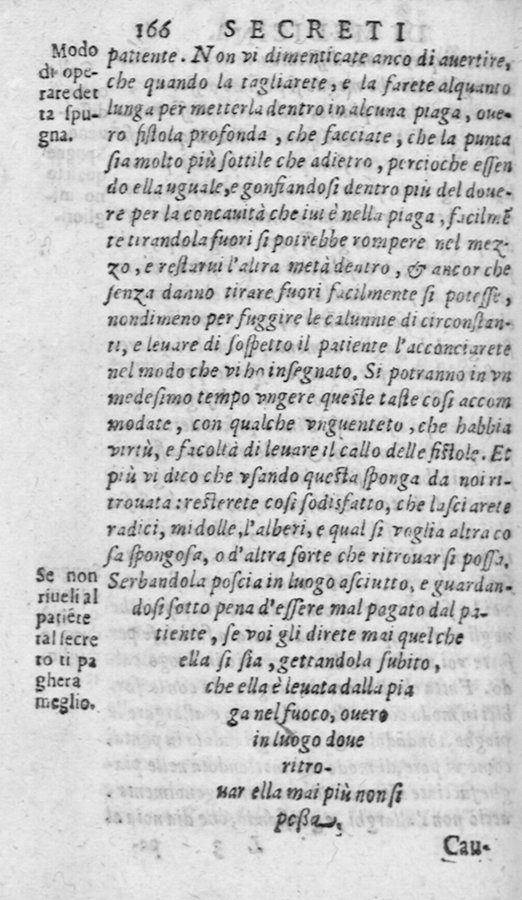 166 SECRETI
Modo
di ope-
rare det
ta spu-
gna.
patiente. Non vi dimenticate anco di auertire,
che quando la tagliarete, e la farete alquanto
lunga per metterla dentro in alcuna piaga, oue-
ro fistola profonda, che facciate, che la punta
sia molto più sottile che adietro, percioche essen
do ella uguale, e gonfiandosi dentro più del doue-
re per la concauità che iui è nella piaga, facilmẽ
te tirandola fuori si potrebbe rompere nel mez-
zo, e restarui l'altra metà dentro, & ancor che
senza danno tirare fuori facilmente si potesse,
nondimeno per fuggire le calunnie di circonstan-
ti, e leuare di sospetto il patiente l'acconciarete
nel modo che vi ho insegnato. Si potranno in vn
medesimo tempo vngere queste taste cosi accom
modate, con qualche vnguenteto, che habbia
virtù, e facoltà di leuare il callo delle fistole. Et
più vi dico che vsando questa sponga da noi ri-
trouata: resterete cosi sodisfatto, che lasciarete
radici, midolle, l'alberi, e qual si voglia altra co
sa spongosa, o d'altra sorte che ritrouar si possa.
Serbandola poscia in luogo asciutto, e guardan-
dosi sotto pena d'essere mal pagato dal pa-
tiente, se voi gli direte mai quel che
ella si sia, gettandola subito,
che ella è leuata dalla pia
ga nel fuoco, ouero
in luogo doue
ritro-
uar ella mai più non si
possa.
Se non
riueli al
patiẽte
tal secre
to ti pa
ghera
meglio.
Cau-